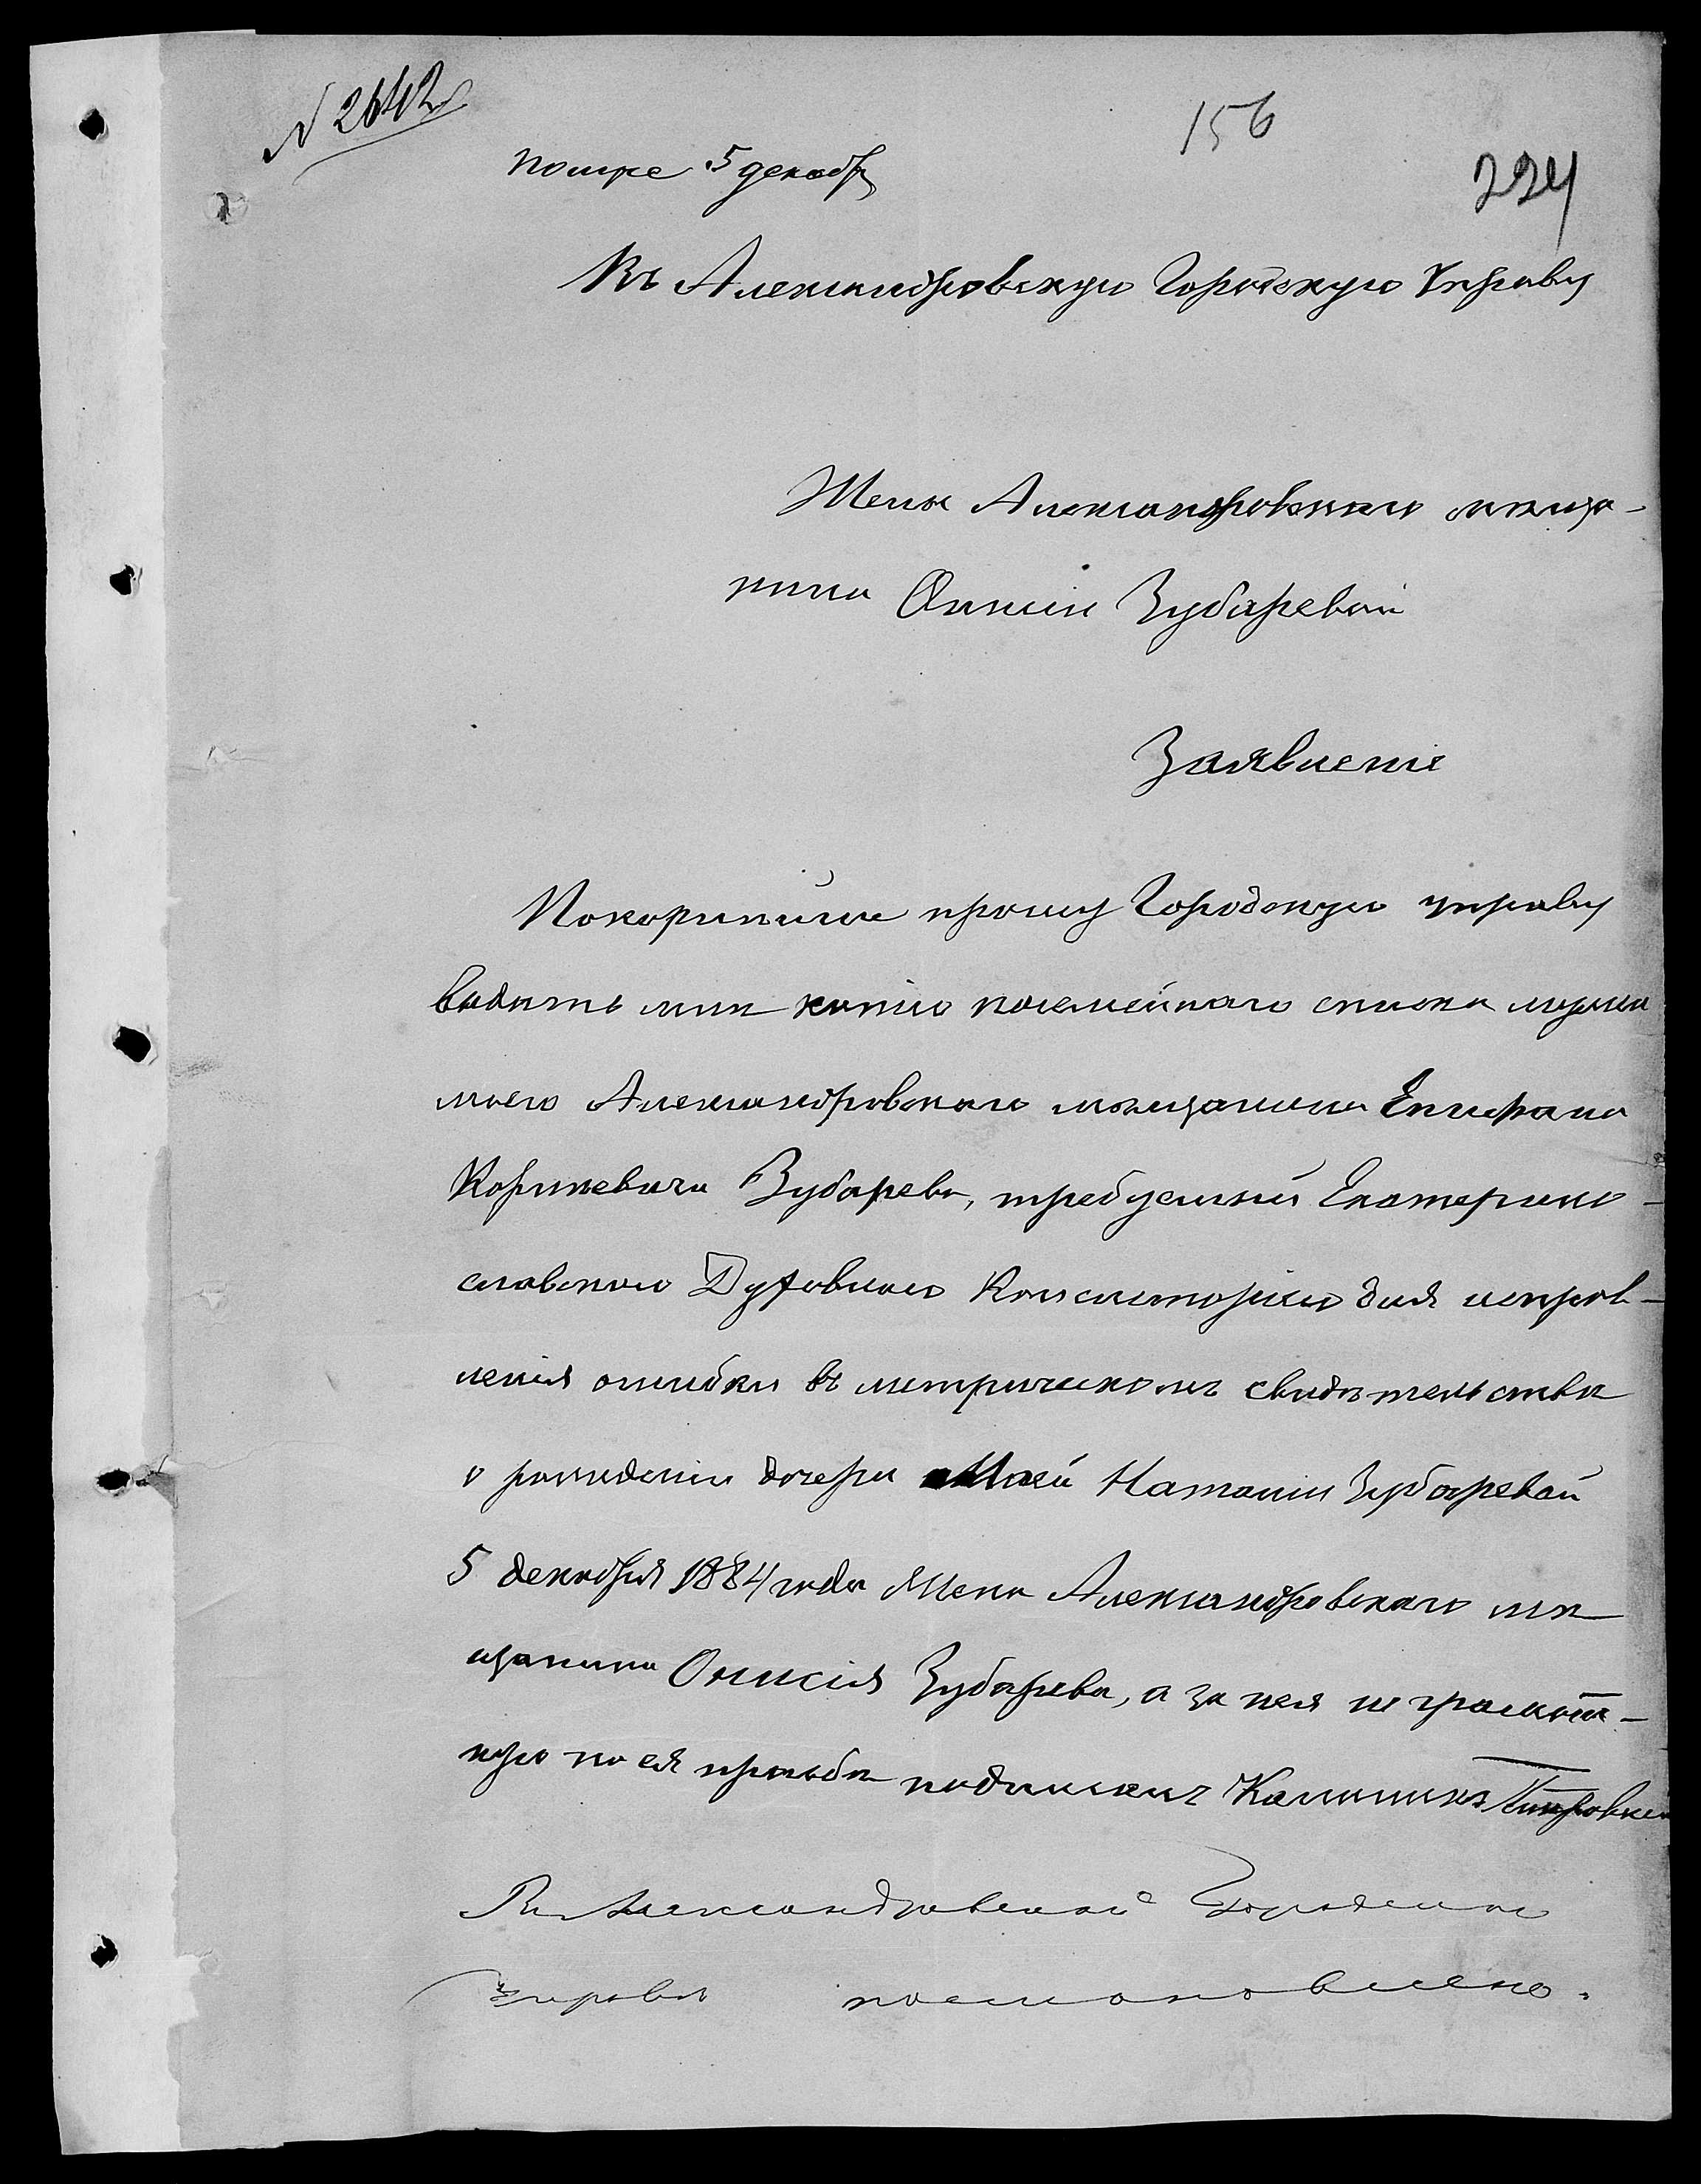 N 2642
156
224
Въ Александровскую Городскую Управу
Жены Александровскаго мѣща-
нина Онисіи Зубаревой
Заявленіе
Покорнѣйше прошу Городскую управу
выдать мнѣ копію посемейнаго списка мужа
моего Александровскаго мѣщанина Епифана
Корнѣевича Зубарева, требуемый Екатерино-
славскою Духовною Консисторіею для исправ-
ленія ошибки въ метрическомъ свидѣтельствѣ
о рожденіи дочери Моей Наталіи Зубаревой
5 декабря 1884 года Жена Александровскаго мѣ
щанина Онисія Зубарева, а за нея не грамот-
ную по ея прозьбѣ подписался
Въ Александровской Городской
Управѣ постановлено.